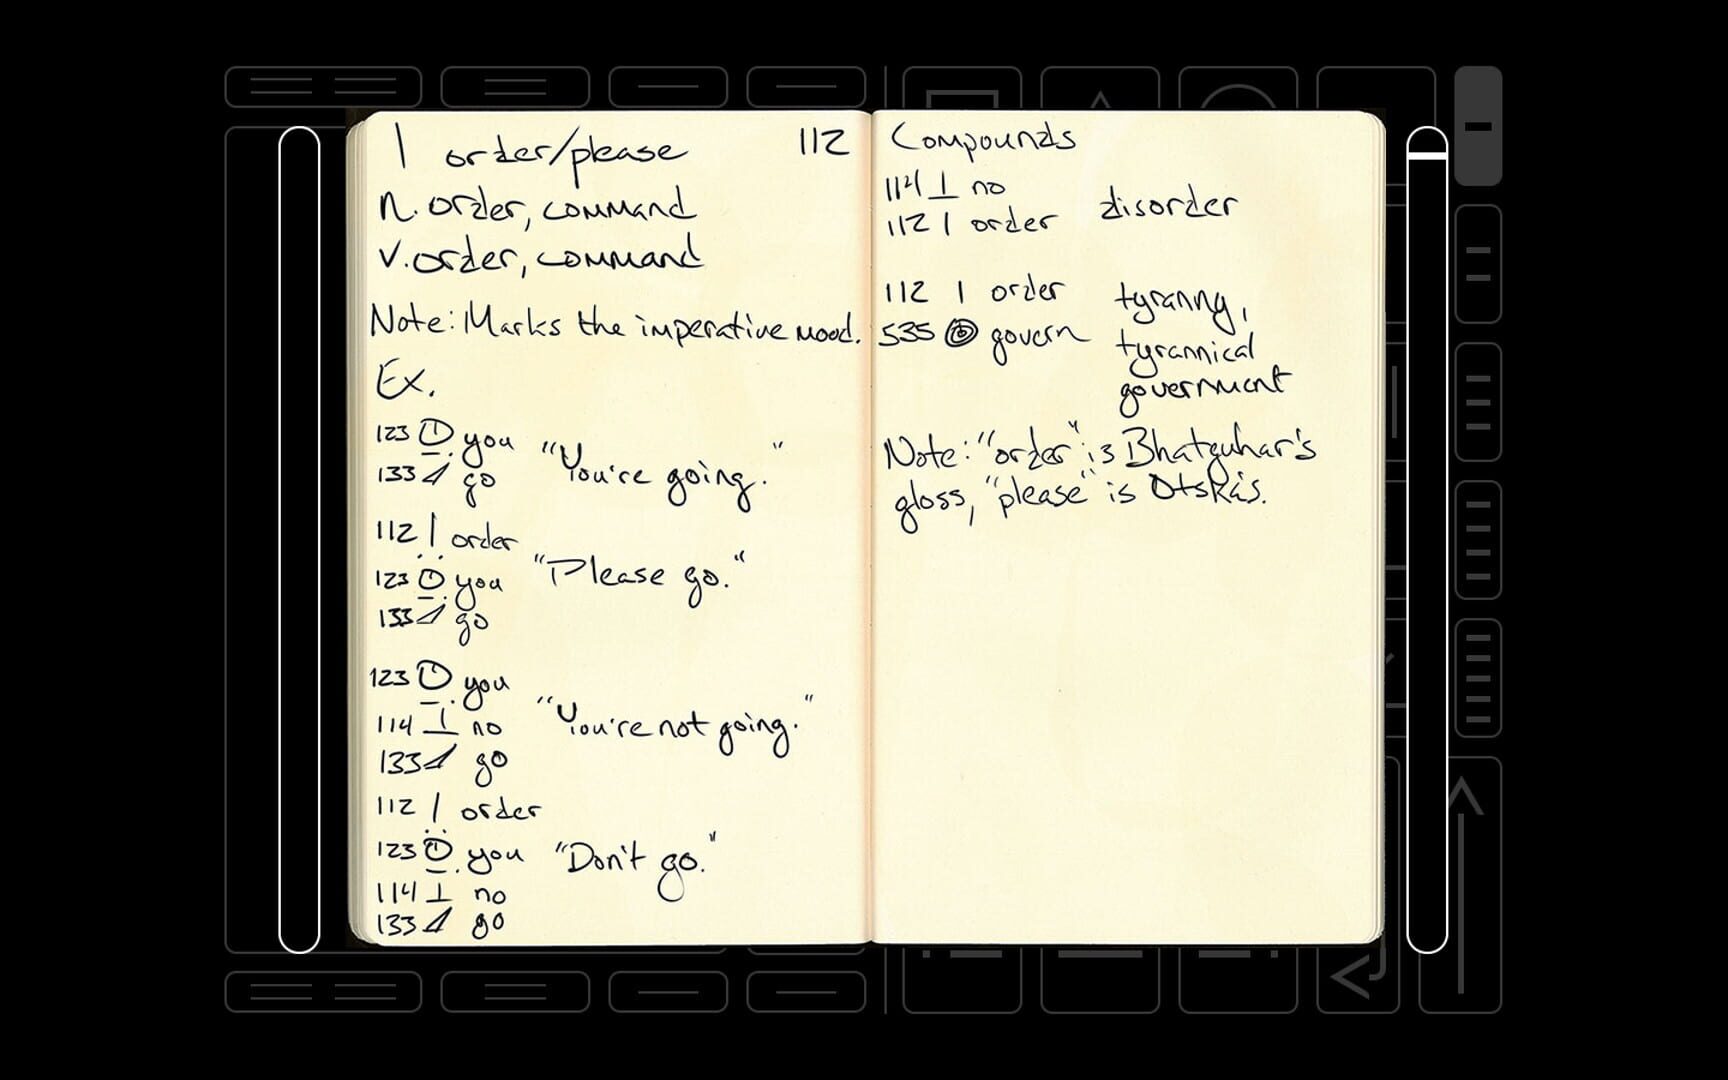 | order/please 112
n. order, command
v. order, command
Note: Marks the imperative mood.
Ex.
123 you
133 go
"You're going."
112 | order
123 you
133 go
"Please go."
123 you
114 ⊥ no
133 go
"You're not going."
112 | order
123 you
114 ⊥ no
133 go
"Don't go."
Compounds
114 ⊥ no
112 | order
disorder
112 | order
535 govern
tyranny,
tyrannical
government
Note: "order" is Bhatguhar's
gloss, "please" is Otska's.